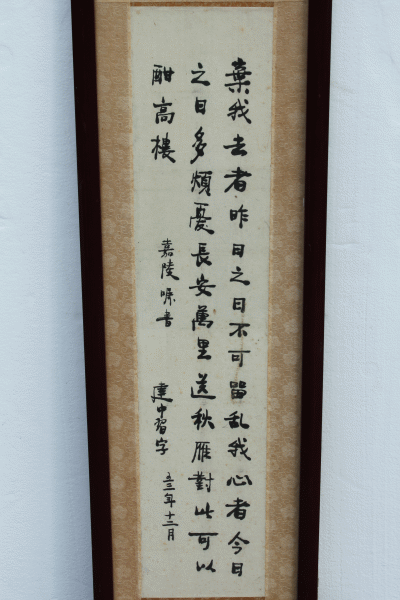 棄我去者昨日之日不可留乱我心者今日
之日多煩憂長安萬里送秋雁對此可以
酣高樓
嘉陵 書
建中習字
五三年十二月